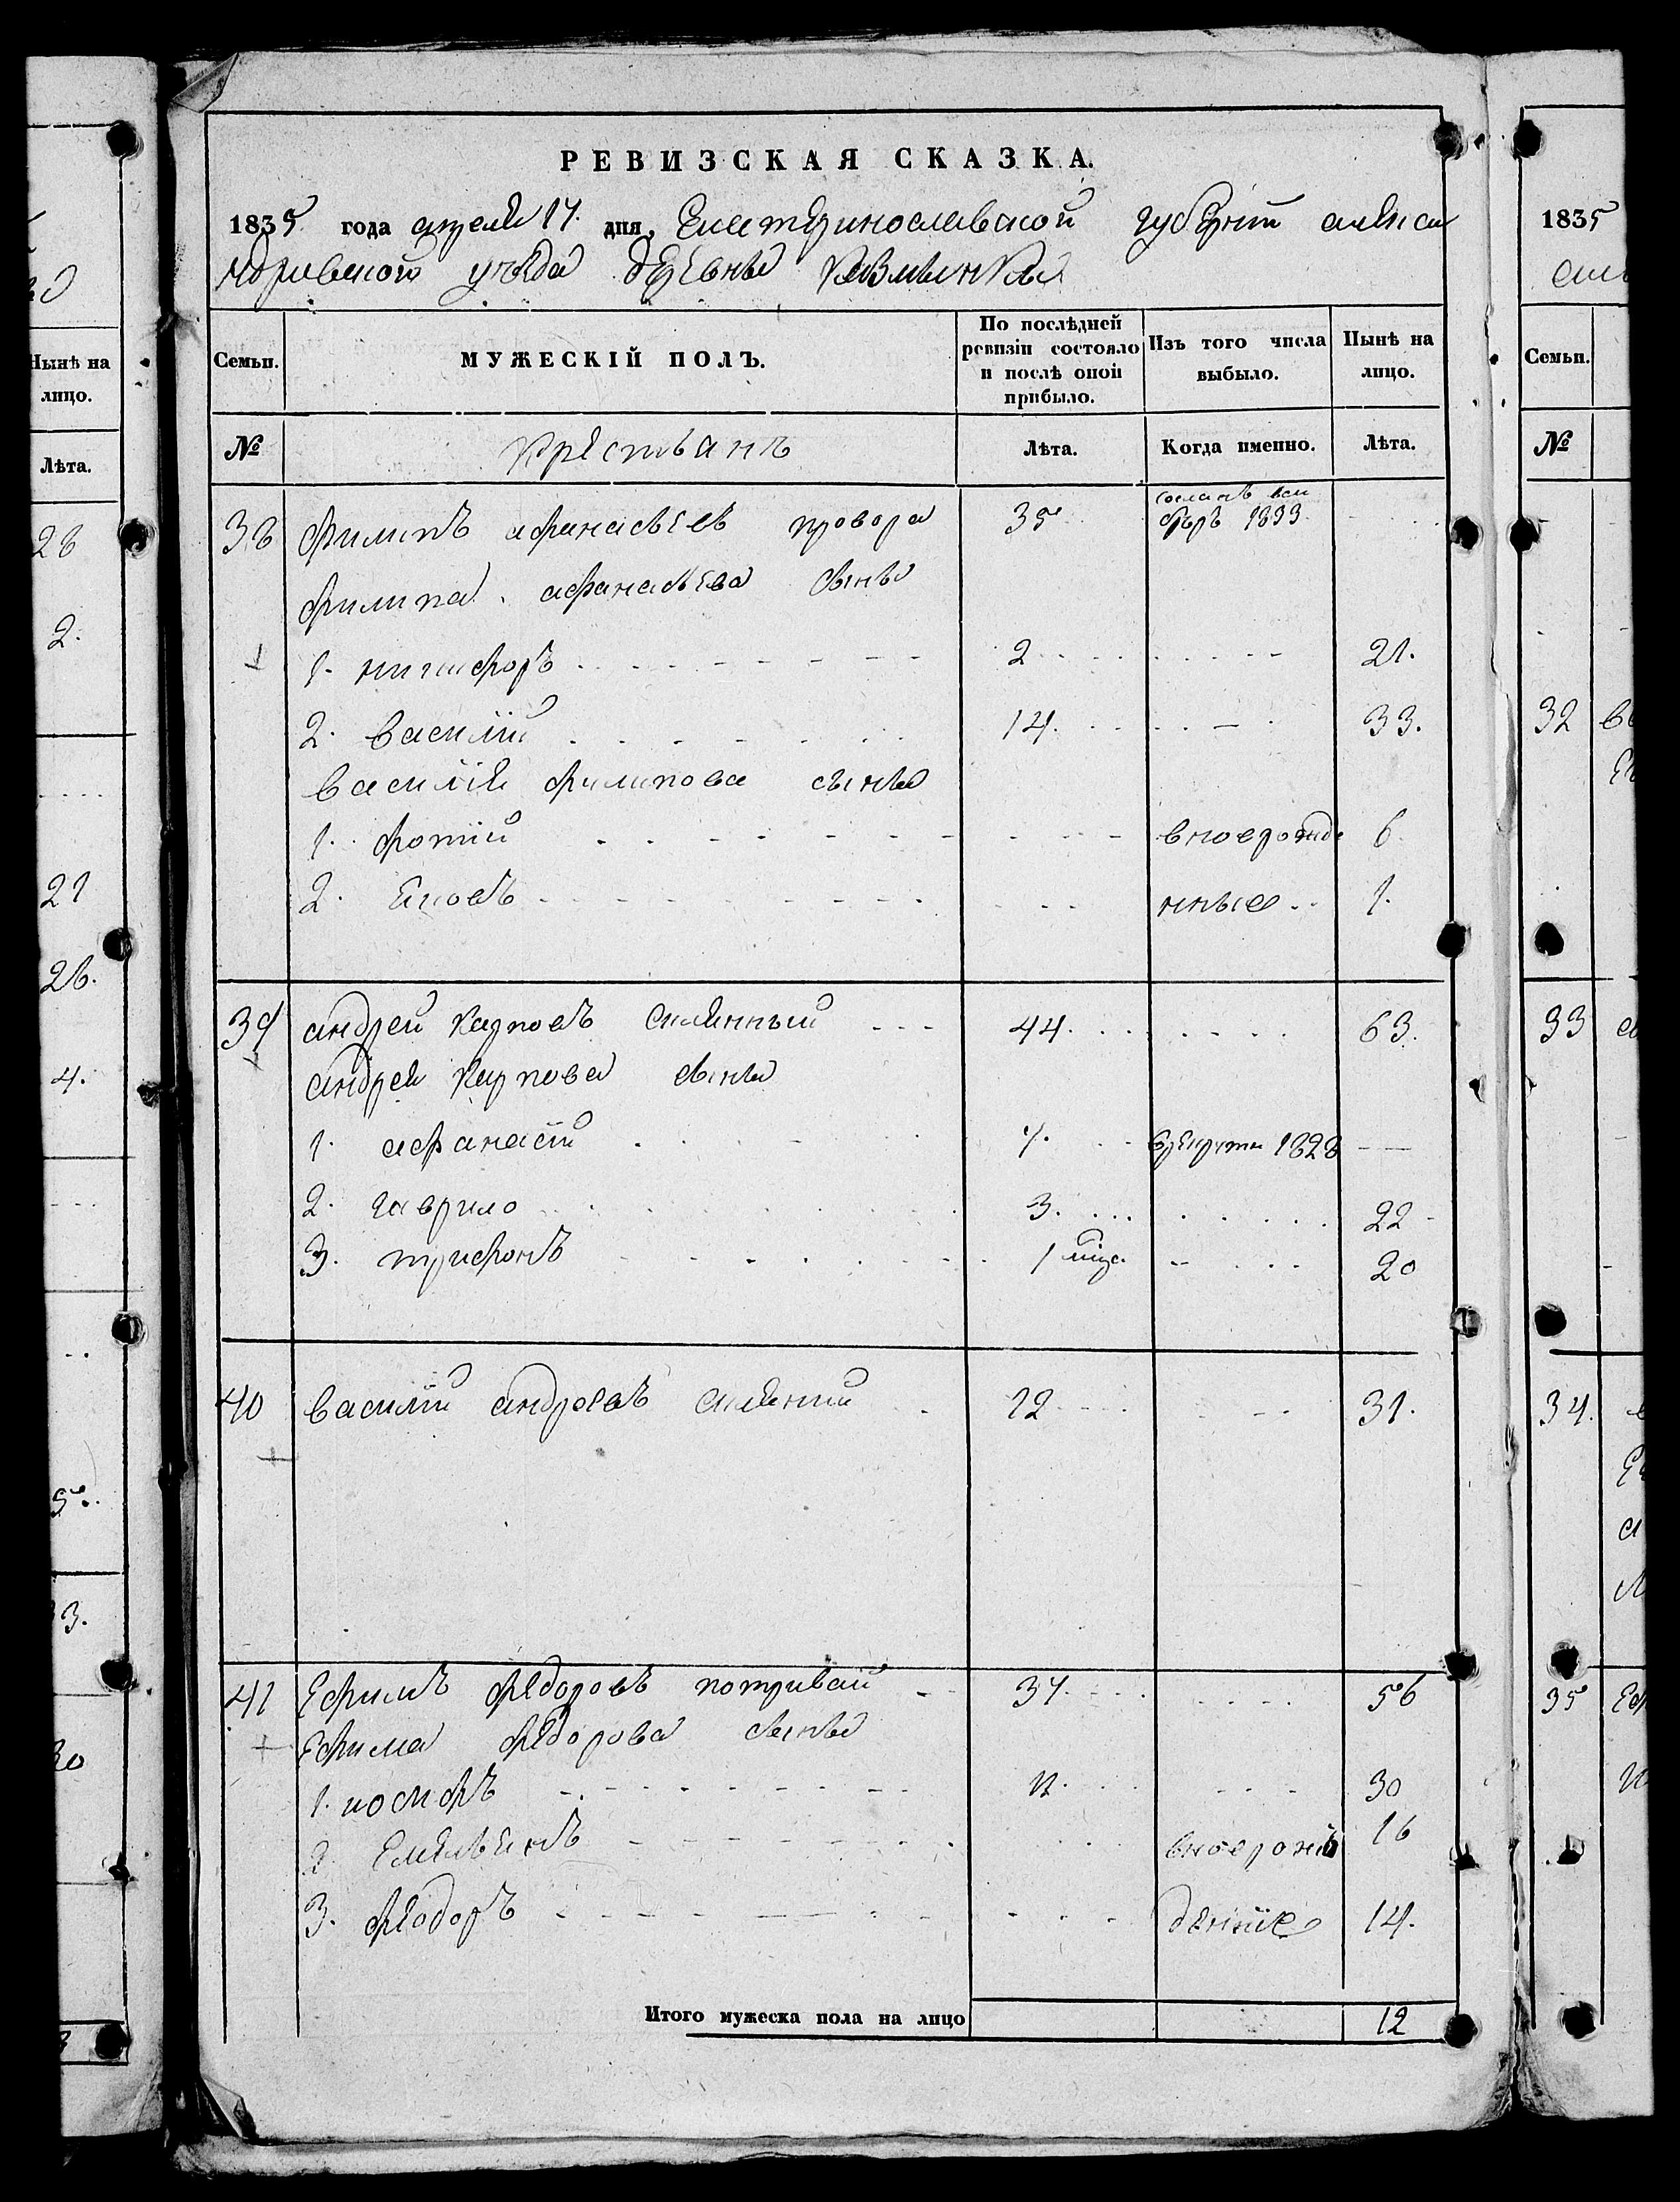 РЕВИЗСКАЯ СКАЗКА.
1835 года апреля 17. дня, Екатеринославской губернии алекса
ндровского уезда деревни
Семьи.
МУЖЕСКІЙ ПОЛЪ.
По послѣдней ревизіи состояло и послѣ оной прибыло.
Изъ того числа выбыло.
Нынѣ на лицо.
№
Крестьянъ
Лѣта.
Когда именно.
Лѣта.
38 филипъ афанасьевъ провора 35 сосланъ 1833
филипа афанасьева сынья
1. никифоръ 2 21.
2. василий 14. 33.
василия филипова сынья
1. фотий вноврожде 6.
2. яковъ нные 1.
39 андрей карповъ 44. 63.
андрея карпова сынья
1. афанасий 7. врекруты 1828
2. гаврило 3. 22
3. трифонъ 1 мца. 20
40 василий андреевъ 12 31.
41 Ефимъ федоровъ потривай 37. 56
Ефима федорова сынья
1. иосифъ 11. 30
2 Емельянъ вноврож 16
3. федоръ денние 14.
Итого мужеска пола на лицо 12
Нынѣ на лицо.
Лѣта.
28
2.
21
26.
4.
1835
Семьи.
№
32
33
34.
35